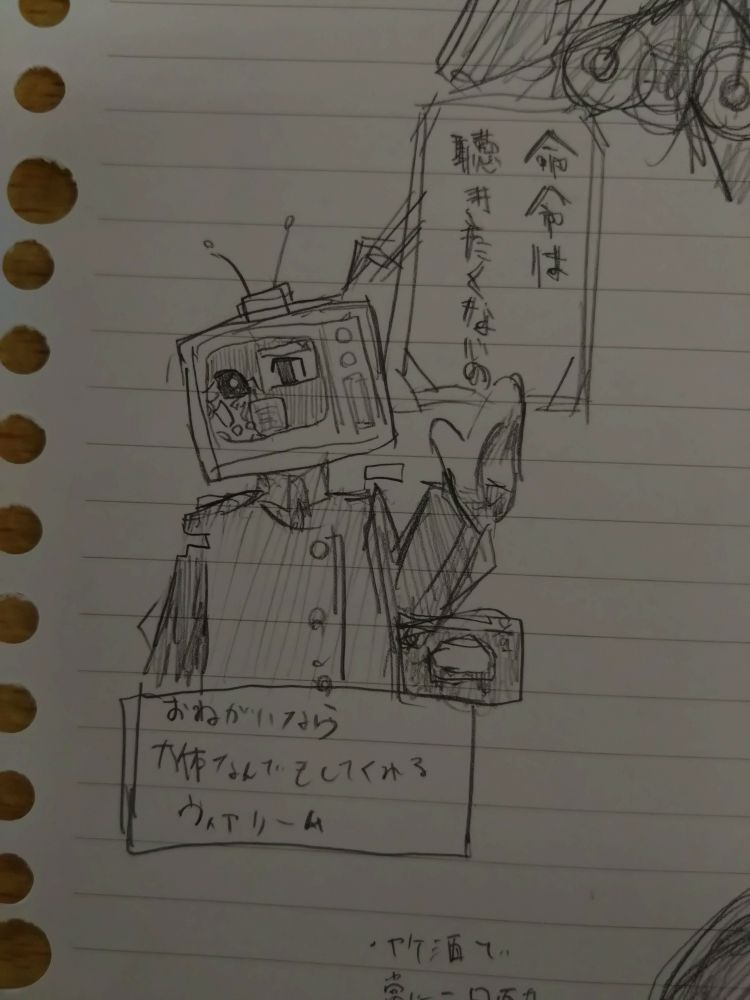 命令は
聴きたくないの
おねがいなら
大体なんでもしてくれる
ヴィヤリーム
・ヤケ酒で
常に二日酔